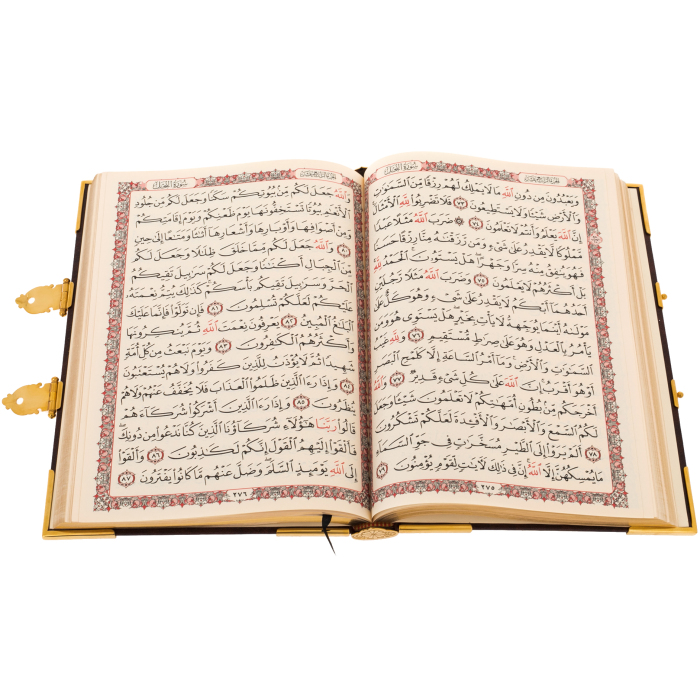 سورة النحل
وَيَعْبُدُونَ مِن دُونِ ٱللَّهِ مَا لَا يَمْلِكُ لَهُمْ رِزْقًا مِّنَ ٱلسَّمَٰوَٰتِ
وَٱلْأَرْضِ شَيْـًٔا وَلَا يَسْتَطِيعُونَ ٧٣ فَلَا تَضْرِبُوا۟ لِلَّهِ ٱلْأَمْثَالَ
إِنَّ ٱللَّهَ يَعْلَمُ وَأَنتُمْ لَا تَعْلَمُونَ ٧٤ ضَرَبَ ٱللَّهُ مَثَلًا عَبْدًا
مَّمْلُوكًا لَّا يَقْدِرُ عَلَىٰ شَىْءٍ وَمَن رَّزَقْنَٰهُ مِنَّا رِزْقًا حَسَنًا
فَهُوَ يُنفِقُ مِنْهُ سِرًّا وَجَهْرًا هَلْ يَسْتَوُۥنَ ٱلْحَمْدُ لِلَّهِ
بَلْ أَكْثَرُهُمْ لَا يَعْلَمُونَ ٧٥ وَضَرَبَ ٱللَّهُ مَثَلًا رَّجُلَيْنِ
أَحَدُهُمَآ أَبْكَمُ لَا يَقْدِرُ عَلَىٰ شَىْءٍ وَهُوَ كَلٌّ عَلَىٰ
مَوْلَىٰهُ أَيْنَمَا يُوَجِّههُّ لَا يَأْتِ بِخَيْرٍ هَلْ يَسْتَوِى هُوَ وَمَن
يَأْمُرُ بِٱلْعَدْلِ وَهُوَ عَلَىٰ صِرَٰطٍ مُّسْتَقِيمٍ ٧٦ وَلِلَّهِ غَيْبُ
ٱلسَّمَٰوَٰتِ وَٱلْأَرْضِ وَمَآ أَمْرُ ٱلسَّاعَةِ إِلَّا كَلَمْحِ ٱلْبَصَرِ
أَوْ هُوَ أَقْرَبُ إِنَّ ٱللَّهَ عَلَىٰ كُلِّ شَىْءٍ قَدِيرٌ ٧٧ وَٱللَّهُ
أَخْرَجَكُم مِّنۢ بُطُونِ أُمَّهَٰتِكُمْ لَا تَعْلَمُونَ شَيْـًٔا وَجَعَلَ
لَكُمُ ٱلسَّمْعَ وَٱلْأَبْصَٰرَ وَٱلْأَفْـِٔدَةَ لَعَلَّكُمْ تَشْكُرُونَ
٧٨ أَلَمْ يَرَوْا۟ إِلَى ٱلطَّيْرِ مُسَخَّرَٰتٍ فِى جَوِّ ٱلسَّمَآءِ
مَا يُمْسِكُهُنَّ إِلَّا ٱللَّهُ إِنَّ فِى ذَٰلِكَ لَءَايَٰتٍ لِّقَوْمٍ يُؤْمِنُونَ ٧٩
٢٧٥
سورة النحل
وَٱللَّهُ جَعَلَ لَكُم مِّنۢ بُيُوتِكُمْ سَكَنًا وَجَعَلَ لَكُم مِّن جُلُودِ
ٱلْأَنْعَٰمِ بُيُوتًا تَسْتَخِفُّونَهَا يَوْمَ ظَعْنِكُمْ وَيَوْمَ إِقَامَتِكُمْ
وَمِنْ أَصْوَافِهَا وَأَوْبَارِهَا وَأَشْعَارِهَآ أَثَٰثًا وَمَتَٰعًا إِلَىٰ حِينٍ
٨٠ وَٱللَّهُ جَعَلَ لَكُم مِّمَّا خَلَقَ ظِلَٰلًا وَجَعَلَ لَكُم
مِّنَ ٱلْجِبَالِ أَكْنَٰنًا وَجَعَلَ لَكُمْ سَرَٰبِيلَ تَقِيكُمُ
ٱلْحَرَّ وَسَرَٰبِيلَ تَقِيكُم بَأْسَكُمْ كَذَٰلِكَ يُتِمُّ نِعْمَتَهُۥ
عَلَيْكُمْ لَعَلَّكُمْ تُسْلِمُونَ ٨١ فَإِن تَوَلَّوْا۟ فَإِنَّمَا عَلَيْكَ
ٱلْبَلَٰغُ ٱلْمُبِينُ ٨٢ يَعْرِفُونَ نِعْمَتَ ٱللَّهِ ثُمَّ يُنكِرُونَهَا
وَأَكْثَرُهُمُ ٱلْكَٰفِرُونَ ٨٣ وَيَوْمَ نَبْعَثُ مِن كُلِّ أُمَّةٍ
شَهِيدًا ثُمَّ لَا يُؤْذَنُ لِلَّذِينَ كَفَرُوا۟ وَلَا هُمْ يُسْتَعْتَبُونَ
٨٤ وَإِذَا رَءَا ٱلَّذِينَ ظَلَمُوا۟ ٱلْعَذَابَ فَلَا يُخَفَّفُ عَنْهُمْ وَلَا هُمْ
يُنظَرُونَ ٨٥ وَإِذَا رَءَا ٱلَّذِينَ أَشْرَكُوا۟ شُرَكَآءَهُمْ
قَالُوا۟ رَبَّنَا هَٰٓؤُلَآءِ شُرَكَآؤُنَا ٱلَّذِينَ كُنَّا نَدْعُوا۟ مِن دُونِكَ
فَأَلْقَوْا۟ إِلَيْهِمُ ٱلْقَوْلَ إِنَّكُمْ لَكَٰذِبُونَ ٨٦ وَأَلْقَوْا۟
إِلَى ٱللَّهِ يَوْمَئِذٍ ٱلسَّلَمَ وَضَلَّ عَنْهُم مَّا كَانُوا۟ يَفْتَرُونَ ٨٧
٢٧٦